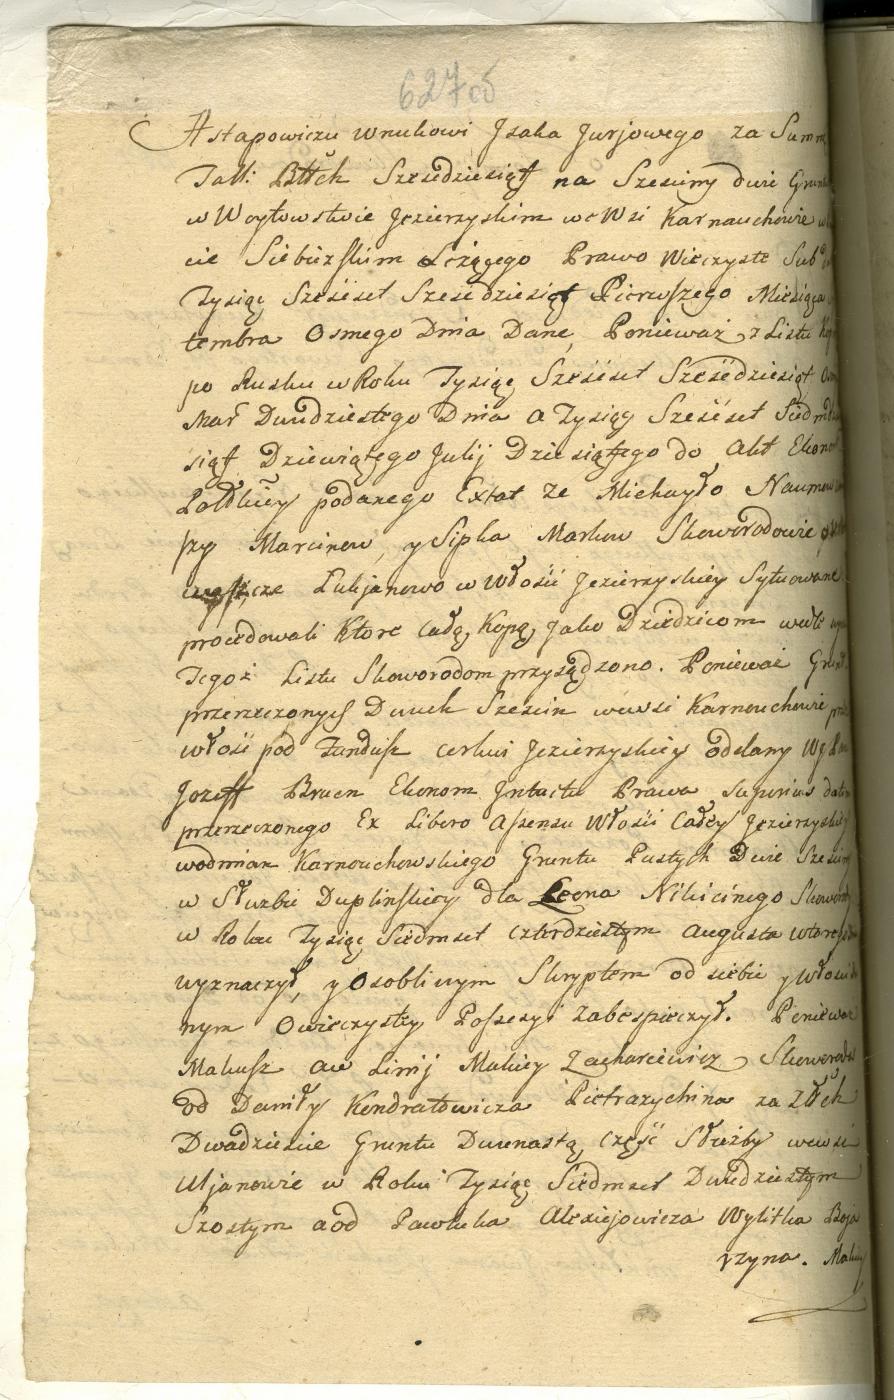 627 об
Astapowiczu wnukowi Jsaka Jurjowego za Summę
Tall: Bitch Sześćdziesiąt na Szesciny dwie Grun
w Woytowstwie Jezierzyskim we Wsi Karnauchowie w
cie Siebiezskim Leżącego Prawo Wieczyste Sub
Tysiąc Sześćset Sześćdziesiąt Pierwszego Miesiąca
tembra Osmego Dnia Dane, Ponieważ z Listu Kop
po Rusku w Roku Tysiąc Sześćset Sześćdziesiąt
Mar Dwudziestego Dnia a Tysiąc Sześćset Siedmdzie
siąt Dziewiątego Julij Dziesiątego do Akt Ekonom
Połockiey podanego Extat że Michayło Naumow
szy Marcinow, y Sipka Markow Skoworodowie, o
cze Lukjanowo w Włości Jezierzyskiey Sytuowane
procedowali Ktore Całą, Kopą, Jako Dziedzicom wedle
Tegoż Listu Skoworodom przysądzono. Ponieważ Grunt
przerzeczonych Dwuch Szescin wewsi Karnouchowie
włość pod Fundusz cerkwi Jezierzyskiey oddany Wy Pan
Jozeff Bruen Ekonom Jntuitu Prawa Superius dato
przerzeczonego Ex Libero Assensu Włości Całey Jezierzyskiey
wodmian Karnouchowskiego Gruntu Pustych Dwie Szesciny
w Służbie Duplinskiey dla Leona Nikicinego Skoworody
w Roku Tysiąc Siedmset Czterdziestym Augusta wtorego
wyznaczył, y Osobliwym Skryptem od siebie y Włości
nym O wieczystey Possesyi Zabespieczył. Ponieważ
Makusz au Linij Makiey Zacharciewicz Skoworoda
od Daniły Kondratowicza Pietrazychina za Złtch
Dwadziescie Gruntu Dwunastą, Część Służby wewsi
Uljanowie w Roku Tysiąc Siedmset Dwudziestym
Szostym a od Pawluka Alexiejowicza Wylitka Boja
rzyna.